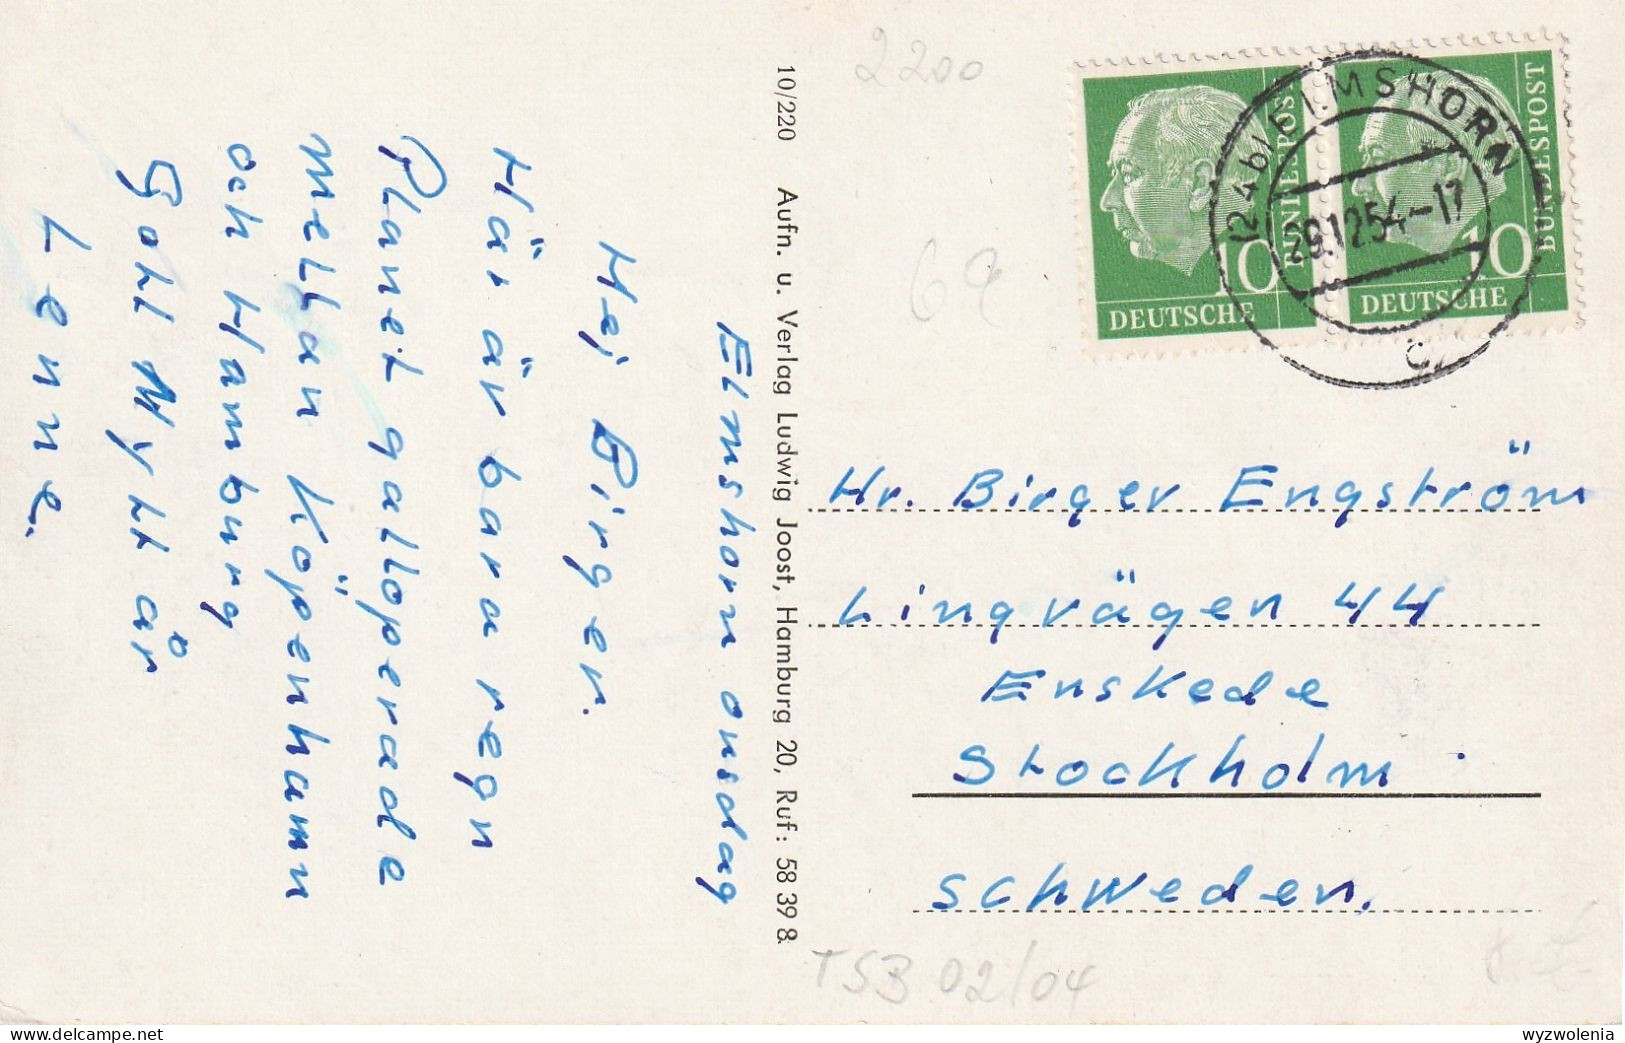 Elmshorn onsdag
Hej Birger.
Här är bara regn
Planet gallopperade
mellan Köpenhamn
och Hamburg
Gott Nytt år
Lenne.
10/220 Aufn. u. Verlag Ludwig Joost, Hamburg 20, Ruf: 58 39 8
2200
69
DEUTSCHE
BUNDESPOST
10
DEUTSCHE
BUNDESPOST
10
(24b) ELMSHORN
29.12.54-17
c
Hr. Birger Engström
Lingvägen 44
Enskede
Stockholm
Schweden.
TSB 02/04
wyzwolenia